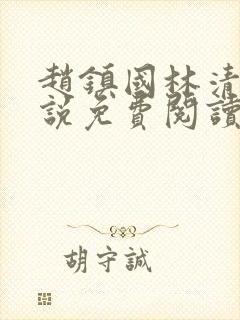 趙鎮國林清
說免費閱讀
胡守誠